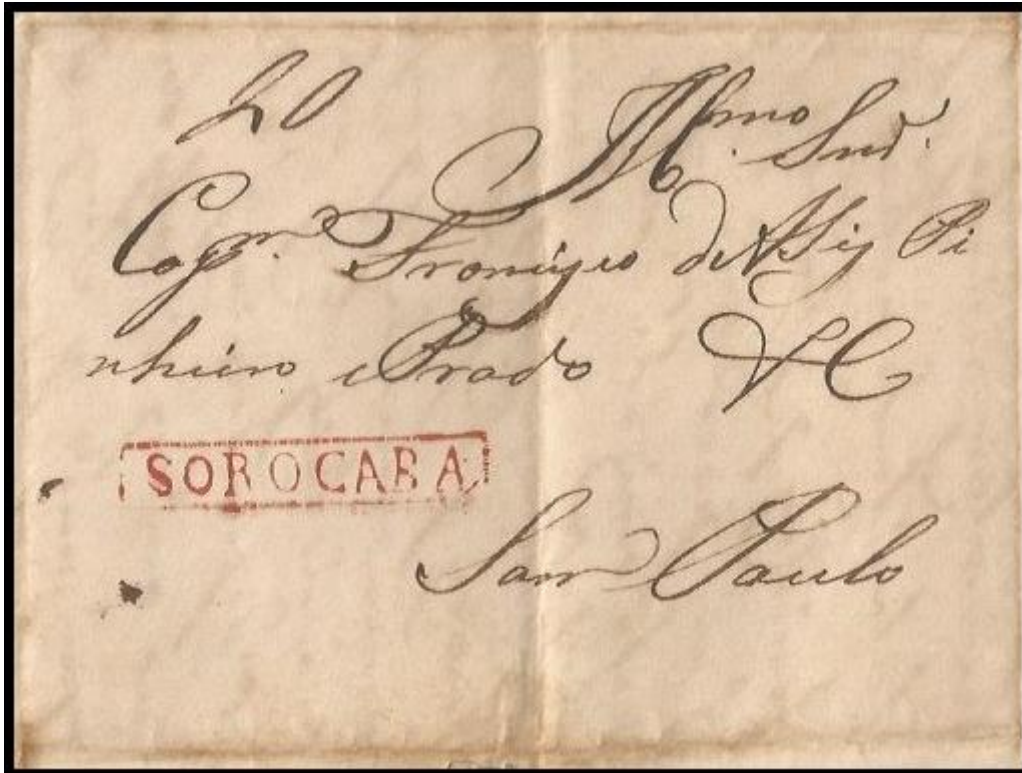 20
Illmo Snr.
Capm. Francisco de Assis Pi
nheiro e Prado &C
SOROCABA
Sam Paulo